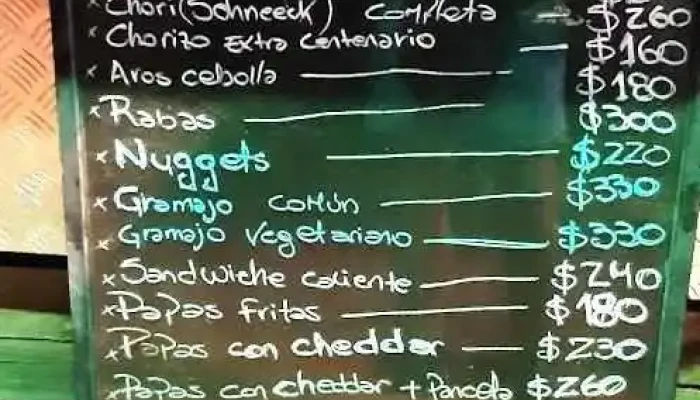 x Chori (Schneeck) completa — $260
x Chorizo Extra Centenario — $160
x Aros cebolla — $180
x Rabas — $300
x Nuggets — $220
x Gramajo común — $330
x Gramajo vegetariano — $330
x Sandwiche caliente — $240
x Papas fritas — $180
x Papas con cheddar — $230
x Papas con cheddar + Panceta $260